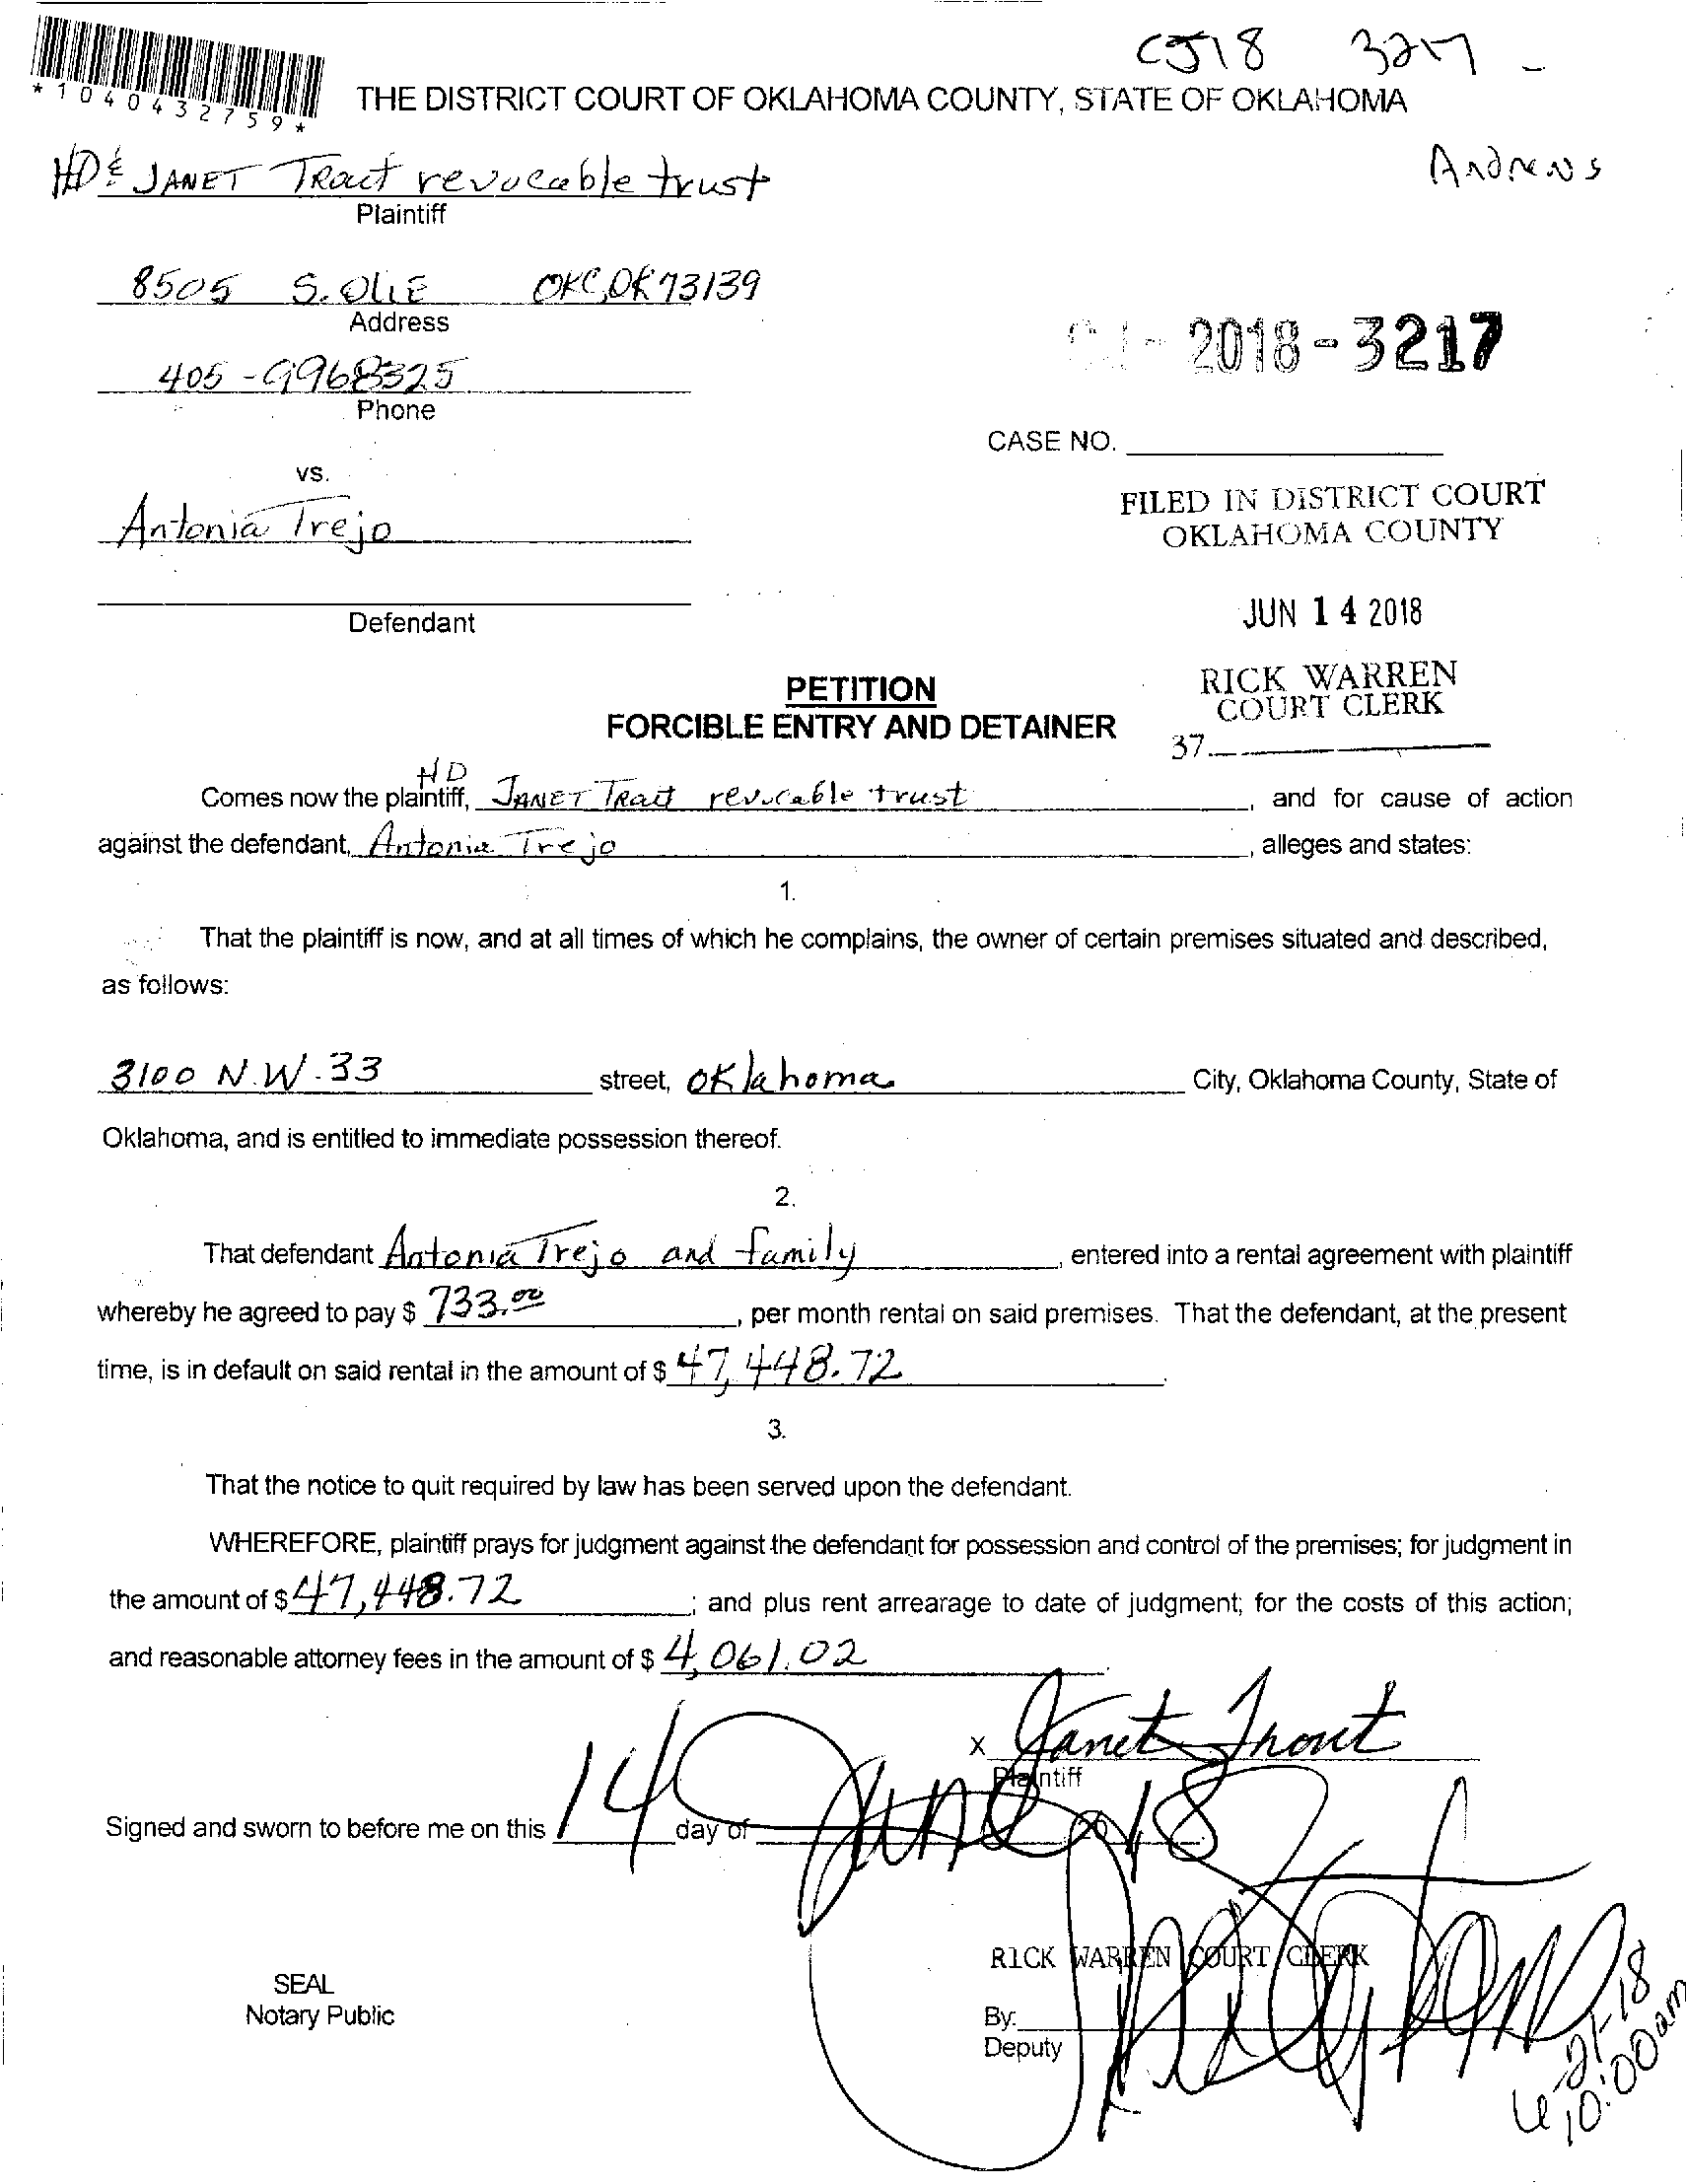 CJ18 3217 -
*1040432759*
THE DISTRICT COURT OF OKLAHOMA COUNTY, STATE OF OKLAHOMA
Andrews
HD & JANET Trout revocable trust
Plaintiff
8505 S. Olie OKC, OK 73139
Address
CJ-2018-3217
405-9968325
Phone
CASE NO.
vs.
FILED IN DISTRICT COURT
OKLAHOMA COUNTY
Antonia Trejo
JUN 14 2018
Defendant
RICK WARREN
COURT CLERK
37.
PETITION
FORCIBLE ENTRY AND DETAINER
HD
Comes now the plaintiff, JANET Trout revocable trust, and for cause of action
against the defendant, Antonia Trejo, alleges and states:
1.
That the plaintiff is now, and at all times of which he complains, the owner of certain premises situated and described,
as follows:
3100 N.W. 33 street, Oklahoma City, Oklahoma County, State of
Oklahoma, and is entitled to immediate possession thereof.
2.
That defendant Antonia Trejo and family, entered into a rental agreement with plaintiff
whereby he agreed to pay $ 733.00, per month rental on said premises. That the defendant, at the present
time, is in default on said rental in the amount of $ 47,448.72.
3.
That the notice to quit required by law has been served upon the defendant.
WHEREFORE, plaintiff prays for judgment against the defendant for possession and control of the premises; for judgment in
the amount of $ 47,448.72; and plus rent arrearage to date of judgment; for the costs of this action;
and reasonable attorney fees in the amount of $ 4,061.02.
x Janet Trout
Plaintiff
Signed and sworn to before me on this 14 day of June, 2018.
RICK WARREN COURT CLERK
SEAL
Notary Public
By:
Deputy
6-21-18
10:00am